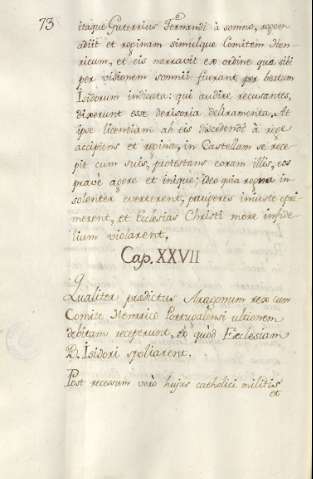 73
itaque Guterrius Fernandi à somno, regem
adiit et reginam simulque Comitem Hen-
ricum, et eis narravit ex ordine quæ sibi
per visionem somnii fuerant per beatum
Isidorum indicata: qui audire recusantes,
dixerunt esse derisoria deliramenta, at
ipse licentiam ab eis discedendi à rege
accipiens et regina, in Castellam se rece-
pit cum suis, protestans coram illis, eos
pravè agere et iniquè; deo quia regna in-
solenter everterent, pauperes iniuste opri-
merent, et Ecclesias Christi more infide-
lium violarent.
Cap. XXVII
Qualiter prædictus Aragonum rex cum
Comite Henrico Portugalensi ultionem
debitam receperunt, eo quòd Ecclesiam
B. Isidori spoliarent.
Post recessum verò hujus catholici militis
et